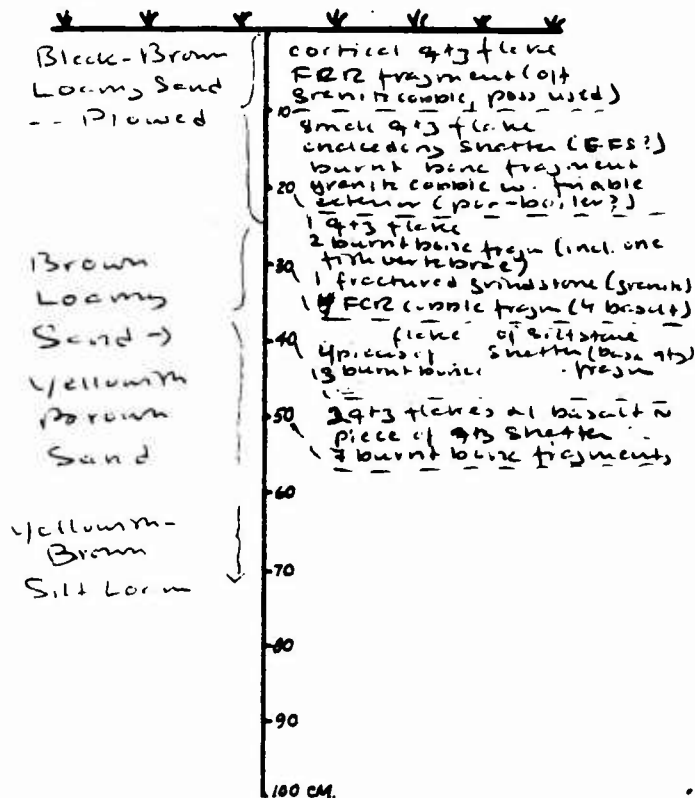 Black-Brown
Loamy Sand
-- Plowed
Brown
Loamy
Sand →
Yellowish
Brown
Sand
Yellowish-
Brown
Silt Loam
cortical qtz flake
FCR fragment (of
granite cobble, poss used)
10
small qtz flake
including shatter (EFS?)
burnt bone fragment
20
granite cobble w. friable
exterior (pot-boiler?)
1 qtz flake
2 burnt bone fragm (incl. one
fish vertebrae)
30
1 fractured grindstone (granite)
FCR cobble fragm (4 basalt)
40
flake of siltstone
4 pieces of shatter (
13 burnt bones fragm
50
2 qtz flakes
piece of qtz shatter
7 burnt bone fragments
60
70
80
90
100 CM.